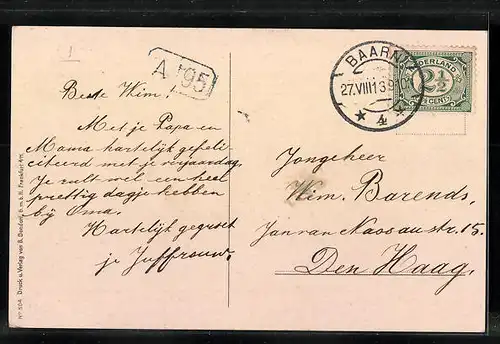 1
A 195
Beste Wim!
Met je Papa en
Mama hartelijk gefeli-
citeerd met je verjaardag.
Je zult wel een heel
prettig dagje hebben
bij Oma.
Hartelijk gegroet
je Juffrouw.
BAARN
27.VIII13 9-10
4
NEDERLAND
2½
CENT
Jongeheer
Wim. Barends.
Jan van Nassaustr. 15.
Den Haag.
No 504 Druck u. Verlag von B. Dondorf, G.m.b.H. Frankfurt a/M.